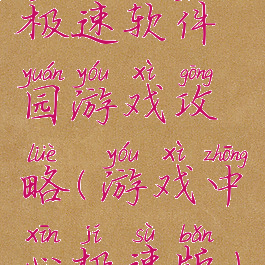 极速软件
yuán yóu xì gōng
园游戏攻
lüè yóu xì zhōng
略(游戏中
xīn jí sù bǎn
心极速版)